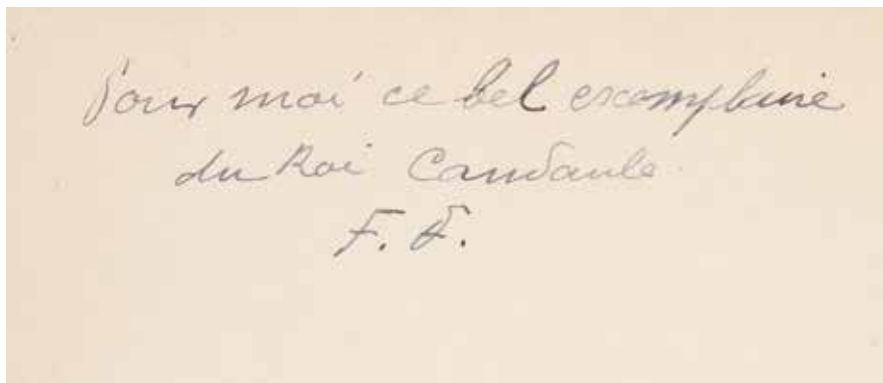 Pour moi ce bel exemplaire
du Roi Candaule.
F. F.